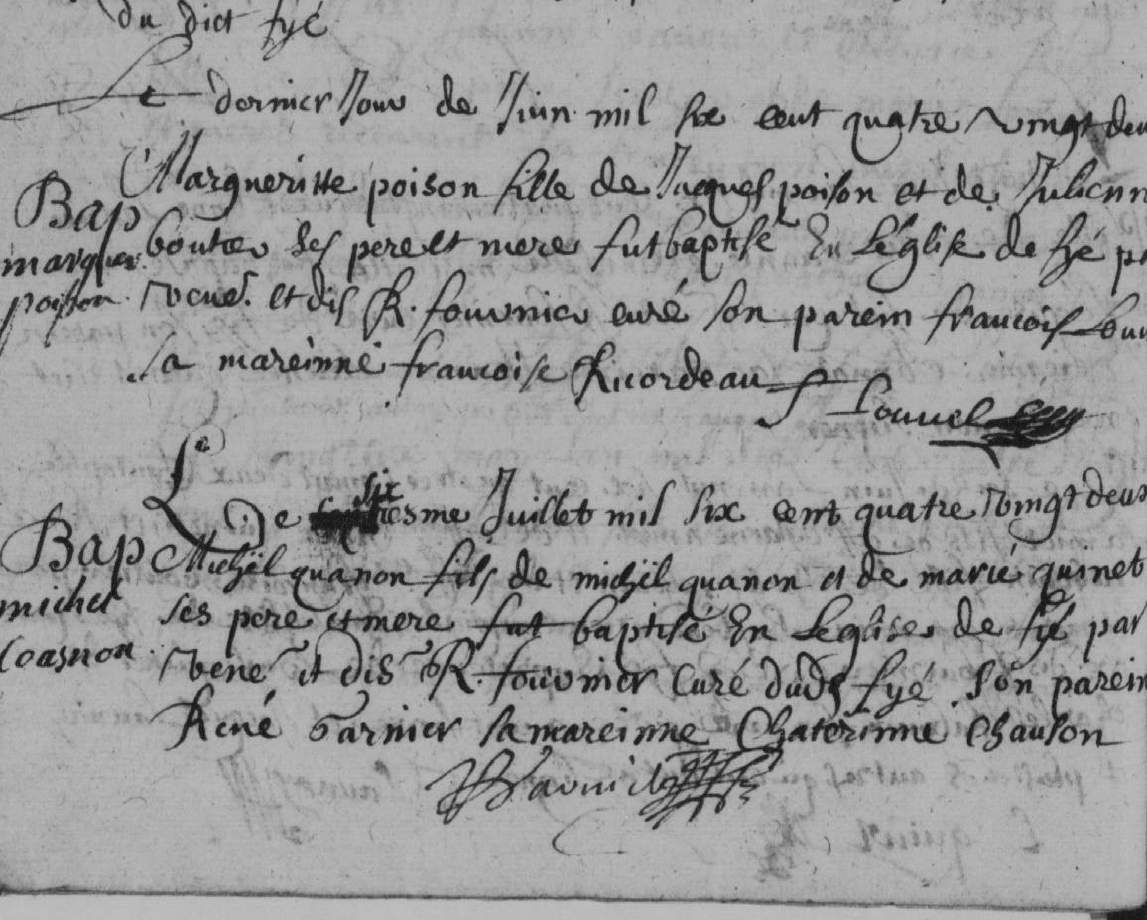 du dict fyé
Le dernier Jour de Juin mil six cent quatre vingt deu
Bap
Margueritte poison fille de Jacques poison et de Julienn
marguer.
boutee ses pere et mere fut baptisé En Leglise de fyé p
poison.
vene. et dis R. fournier curé son parein francois Lou
sa mareinne francoise Ricordeau
f Louvel
Le De six iesme Juillet mil six cent quatre vingt deux
Bap
Michel quanon fils de michel quanon et de marie quinet
michel
ses pere et mere fut baptisé En Leglise de fyé par
Coasnon.
vene. et dis R. fournier Curé dud fyé son parein
René Garnier sa mareinne Chaterinne Chauson
R Garnier